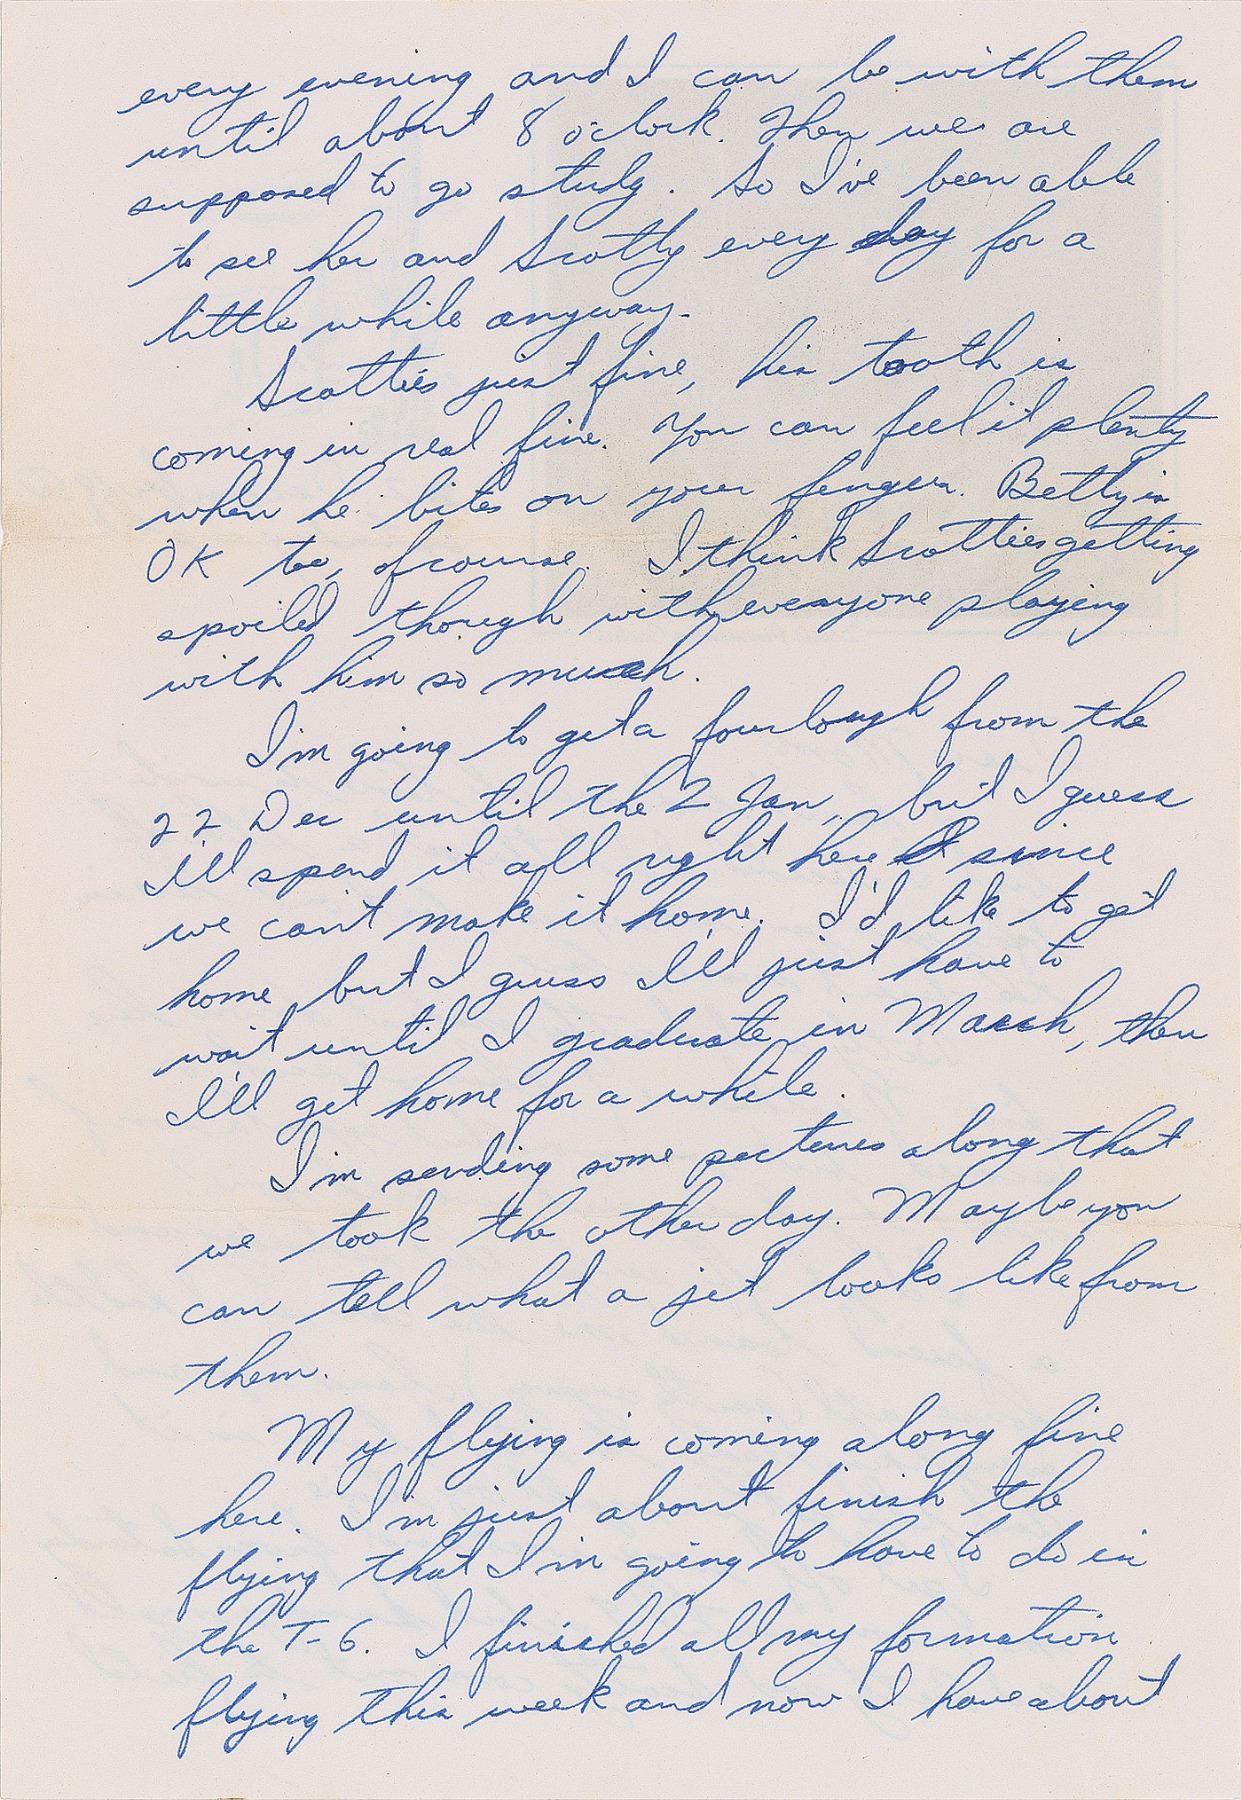 every evening and I can be with them
until about 8 o'clock. Then we are
supposed to go study. So I've been able
to see her and Scotty every day for a
little while anyway.
Scottie's just fine, his tooth is
coming in real fine. You can feel it plenty
when he bites on your finger. Betty is
OK too, ofcourse. I think Scottie's getting
spoiled though with everyone playing
with him so much.
I'm going to get a fourlough from the
22 Dec until the 2 Jan, but I guess
I'll spend it all right here since
we can't make it home. I'd like to get
home but I guess I'll just have to
wait until I graduate in March, then
I'll get home for a while.
I'm sending some pictures along that
we took the other day. Maybe you
can tell what a jet looks like from
them.
My flying is coming along fine
here. I'm just about finish the
flying that I'm going to have to do in
the T-6. I finished all my formation
flying this week and now I have about